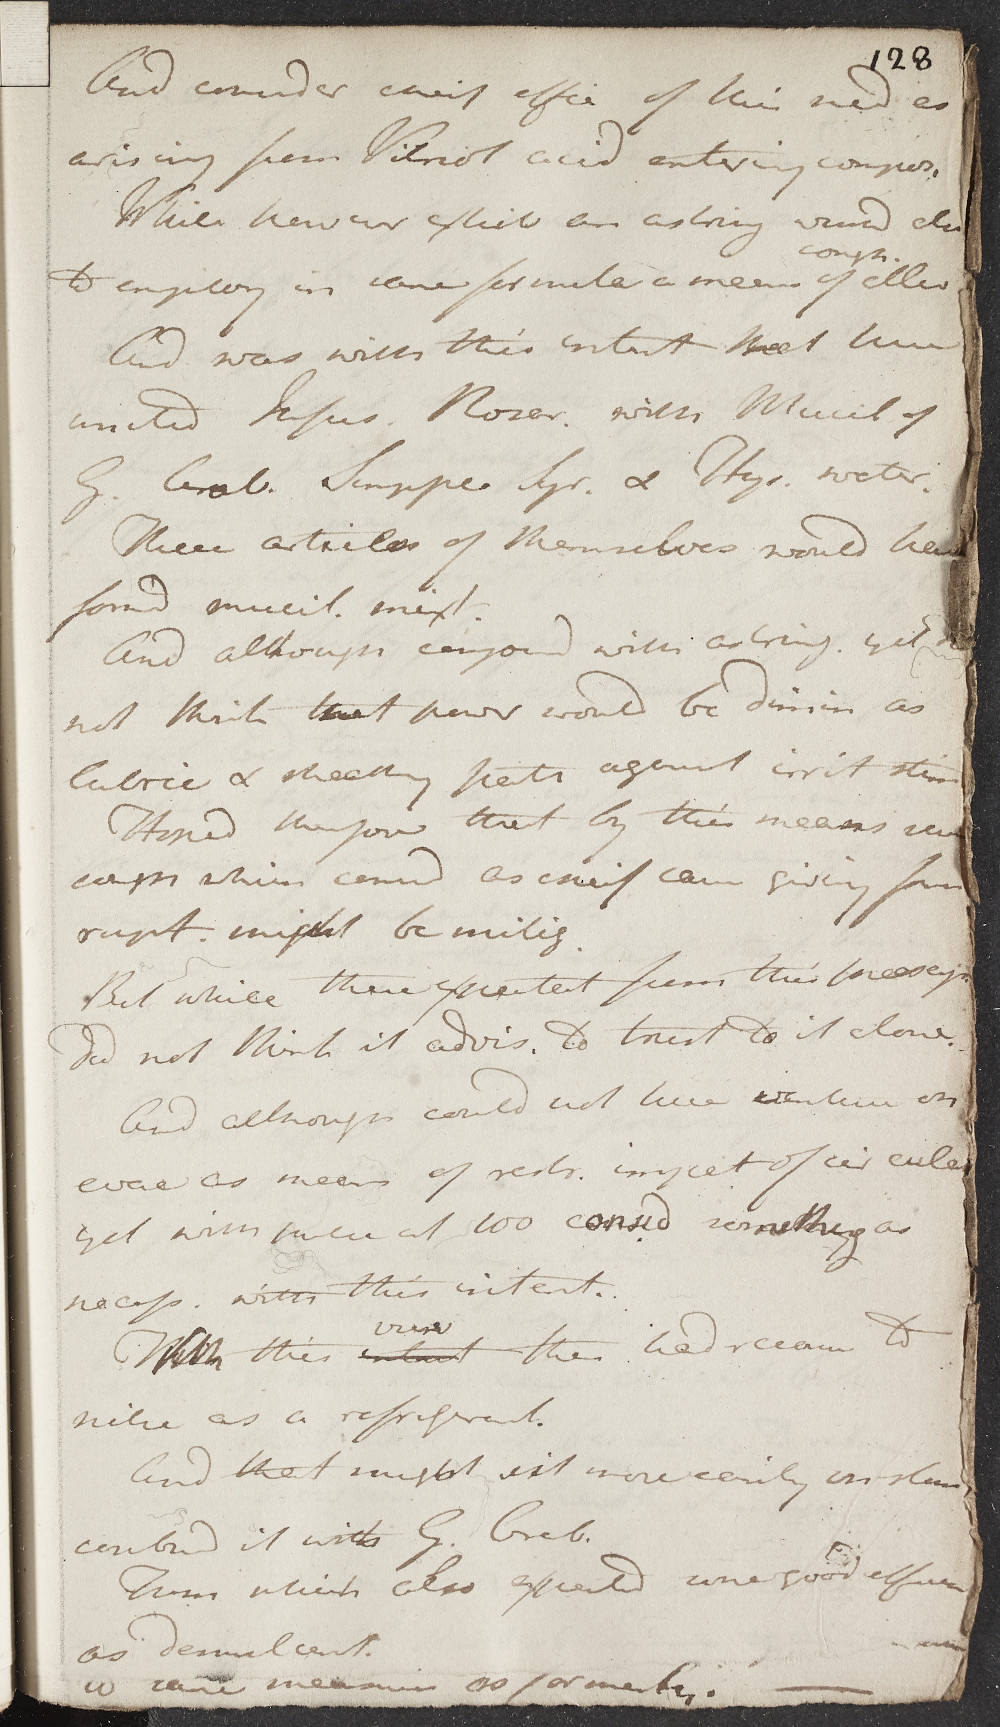 128
And consider chief effic of this med as
arising from Vitriol acid entering compos.
While however exhib an astring would
cough.
to employ in same formula a means of allev
And was with this intent that have
united Infus. Rosar. with Mucil of
G. Arab. Simple Syr. & Hys. water.
These articles of themselves would have
form'd mucil. mixt.
And although conjoind with astring. yet
not think that power would be dimin as
lubric & sheathg parts against irrit stim
Hoped therefore that by this means
cough which consid as chief cause giving from
rupt. might be mitig.
But while thus expectat from this
did not think it advis. to trust to it alone.
And although could not have venture on
evac as means of restr. impet of circula
yet with pulse at 100 consid something as
necess. with this intent.
view
With this intent then had recourse to
nitre as a refrigerant.
And that might sit more easily on stom
combind it with G. Arab.
From which also expected some good
as demulcent.
in same measure as formerly.